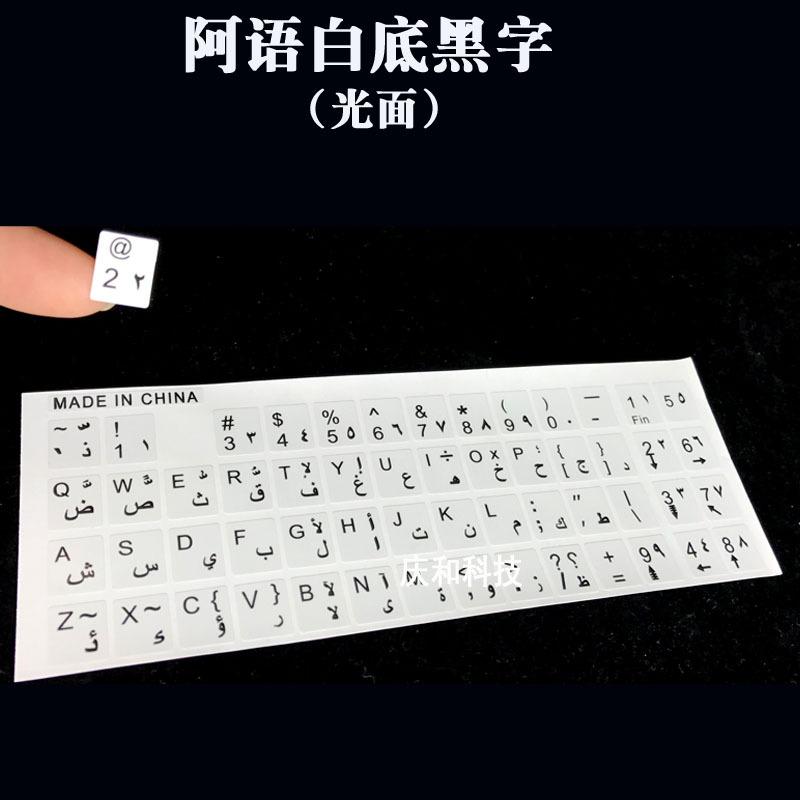 阿语白底黑字
（光面）
@
2 ٢
MADE IN CHINA
~ ّ ذ ! 1 ١ # 3 ٣ $ 4 ٤ % 5 ٥ ^ 6 ٦ & 7 ٧ * 8 ٨ ( 9 ٩ ) 0 ٠ — - 1 ١ Fin 5 ٥
Q ض W ص E ث R ق T لإ ف Y غ U ع I ÷ ه O x خ P ؛ ح { [ ج } ] د 2 ٢ ↓ 6 ٦ →
A ش S س D ي F ب G لأ ل H أ ا J ت K ن L م : ; ك " ' ط | \ 3 ٣ 7 ٧ ↖
Z ~ X ~ ء C { ؤ V } ر B لآ لا N آ ى ة و ز ؟ ? / ظ + = 9 ٩ 4 ٤ ← 8 ٨ ↑
庆和科技